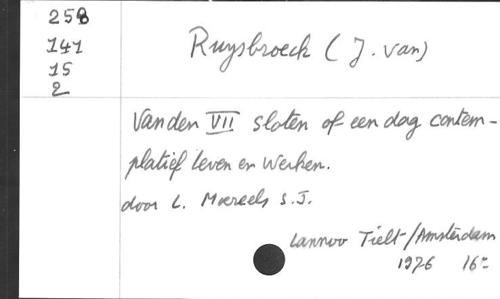 258
141
15
2
Ruysbroeck (J. van)
Vanden VII sloten of een dag contem-
platief leven en werken.
door L. Moereels S.J.
Lannoo Tielt/Amsterdam
1976 16°